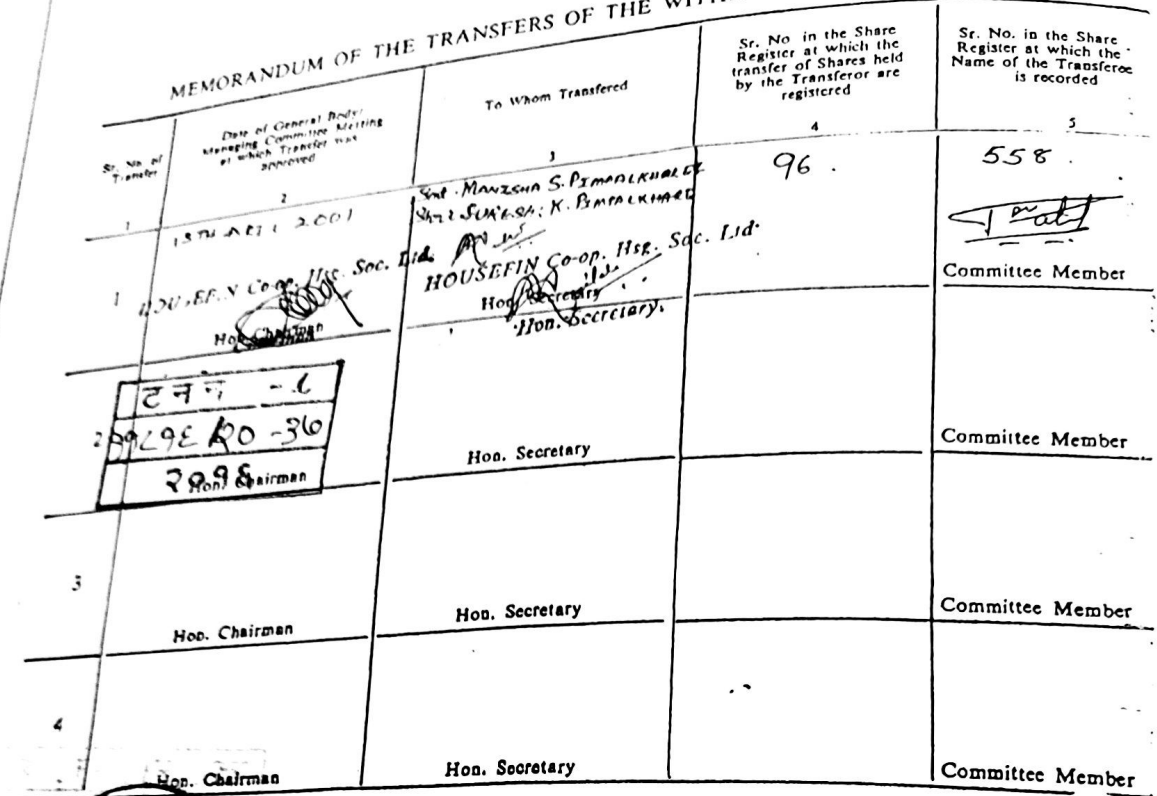 MEMORANDUM OF THE TRANSFERS OF THE
Sr. No. of
Transfer
Date of General Body/
Managing Committee Meeting
at which Transfer was
approved
To Whom Transfered
Sr. No in the Share
Register at which the
transfer of Shares held
by the Transferor are
registered
Sr. No. in the Share
Register at which the
Name of the Transferee
is recorded
1
2
3
4
5
1
2001
Smt. MANISHA S. PIMPALKHARE
K. PIMPALKHARE
96.
558.
HOUSEFIN Co-op. Hsg. Soc. Ltd.
Hon. Chairman
HOUSEFIN Co-op. Hsg. Soc. Ltd.
Hon. Secretary
Hon. Secretary.
Committee Member
2
ट न न
२०१६
Hon. Chairman
Hon. Secretary
Committee Member
3
Hon. Chairman
Hon. Secretary
Committee Member
4
Hon. Chairman
Hon. Secretary
Committee Member